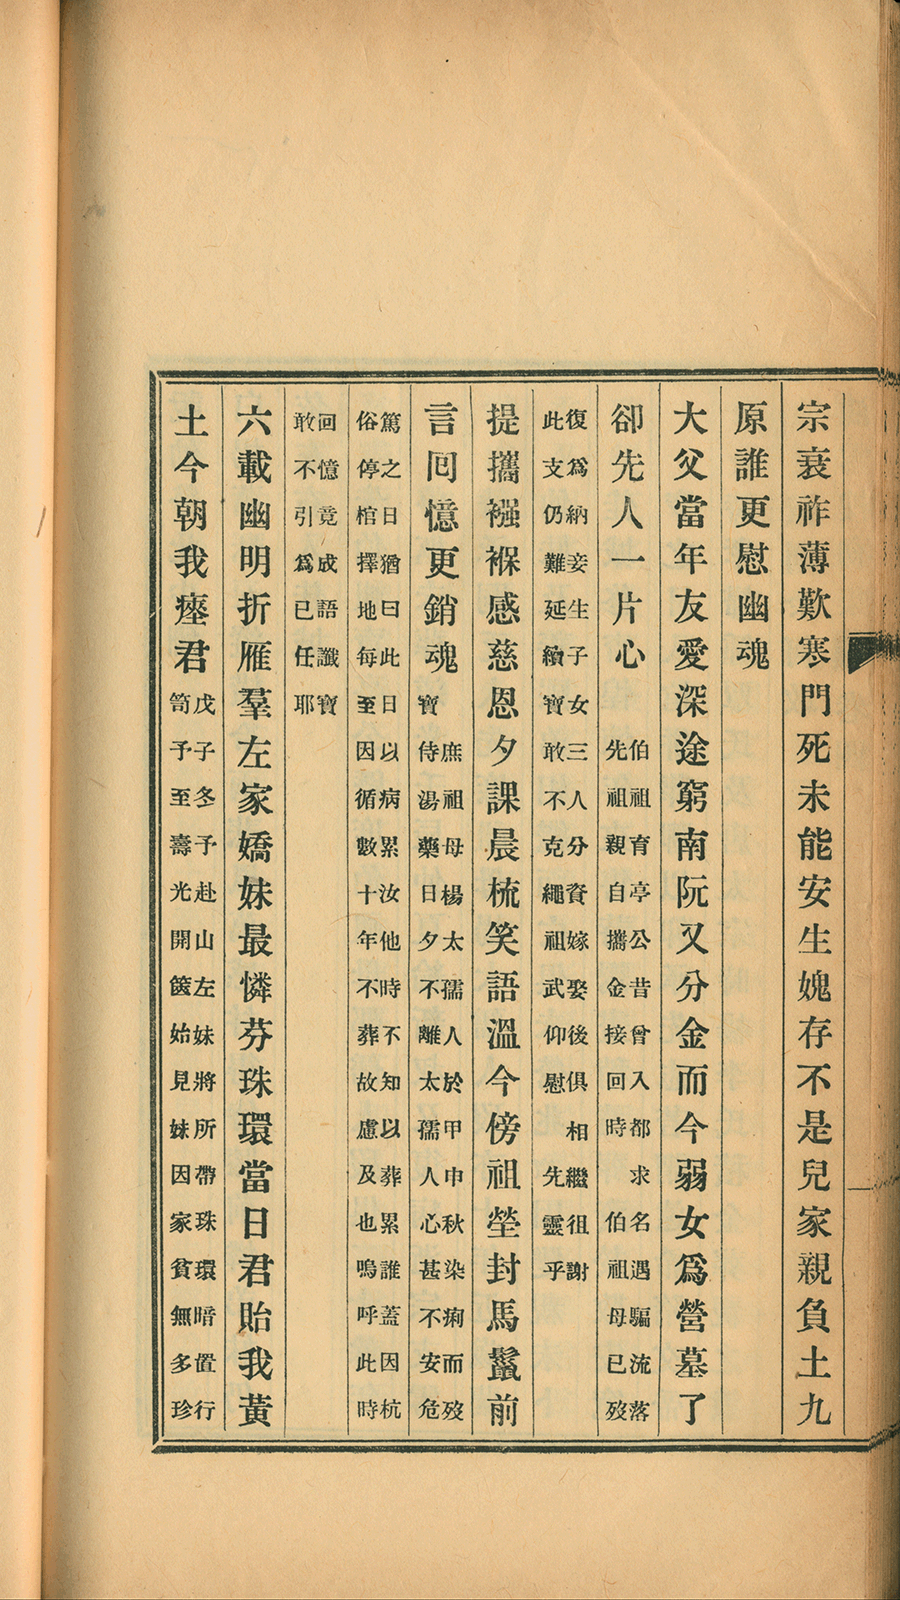 宗衰祚薄歎寒門死未能安生媿存不是兒家親負土九
原誰更慰幽魂
大父當年友愛深途窮南阮又分金而今弱女爲營墓了
卻先人一片心
伯祖育亭公昔曾入都求名遇騙流落
先祖親自攜金接回時伯祖母已歿
復爲納妾生子女三人分資嫁娶後俱相繼徂謝
此支仍難延續寶敢不克繩祖武仰慰先靈乎
提攜襁褓感慈恩夕課晨梳笑語溫今傍祖塋封馬鬣前
言回憶更銷魂
庶祖母楊太孺人於甲申秋染痢而歿
寶侍湯藥日夕不離太孺人心甚不安危
篤之日猶曰此日以病累汝他時不知以葬累誰蓋因杭
俗停棺擇地每至因循數十年不葬故慮及也嗚呼此時
回憶竟成語讖寶
敢不引爲已任耶
六載幽明折雁羣左家嬌妹最憐芬珠環當日君貽我黃
土今朝我瘞君
戊子冬予赴山左妹將所帶珠環暗置行
笥予至壽光開篋始見妹因家貧無多珍